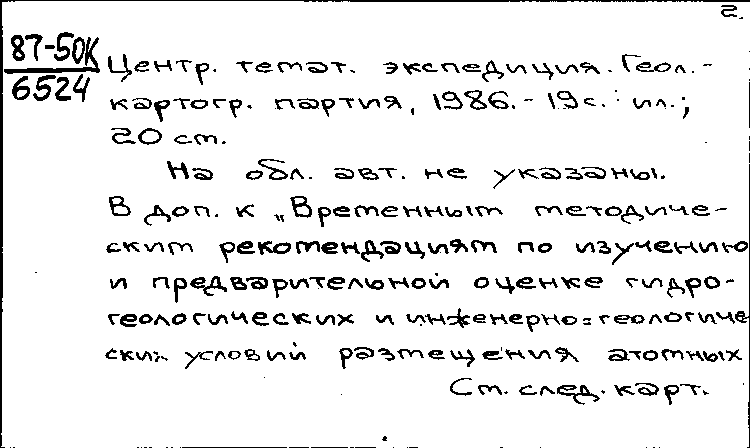 2.
87-50К
6524
Центр. темат. экспедиция. Геол.-
картогр. партия, 1986. - 19 с. : ил.;
20 см.
На обл. авт. не указаны.
В доп. к „Временным методиче-
ским рекомендациям по изучению
и предварительной оценке гидро-
геологических и инженерно-геологиче
ских условий размещения атомных
См. след. карт.